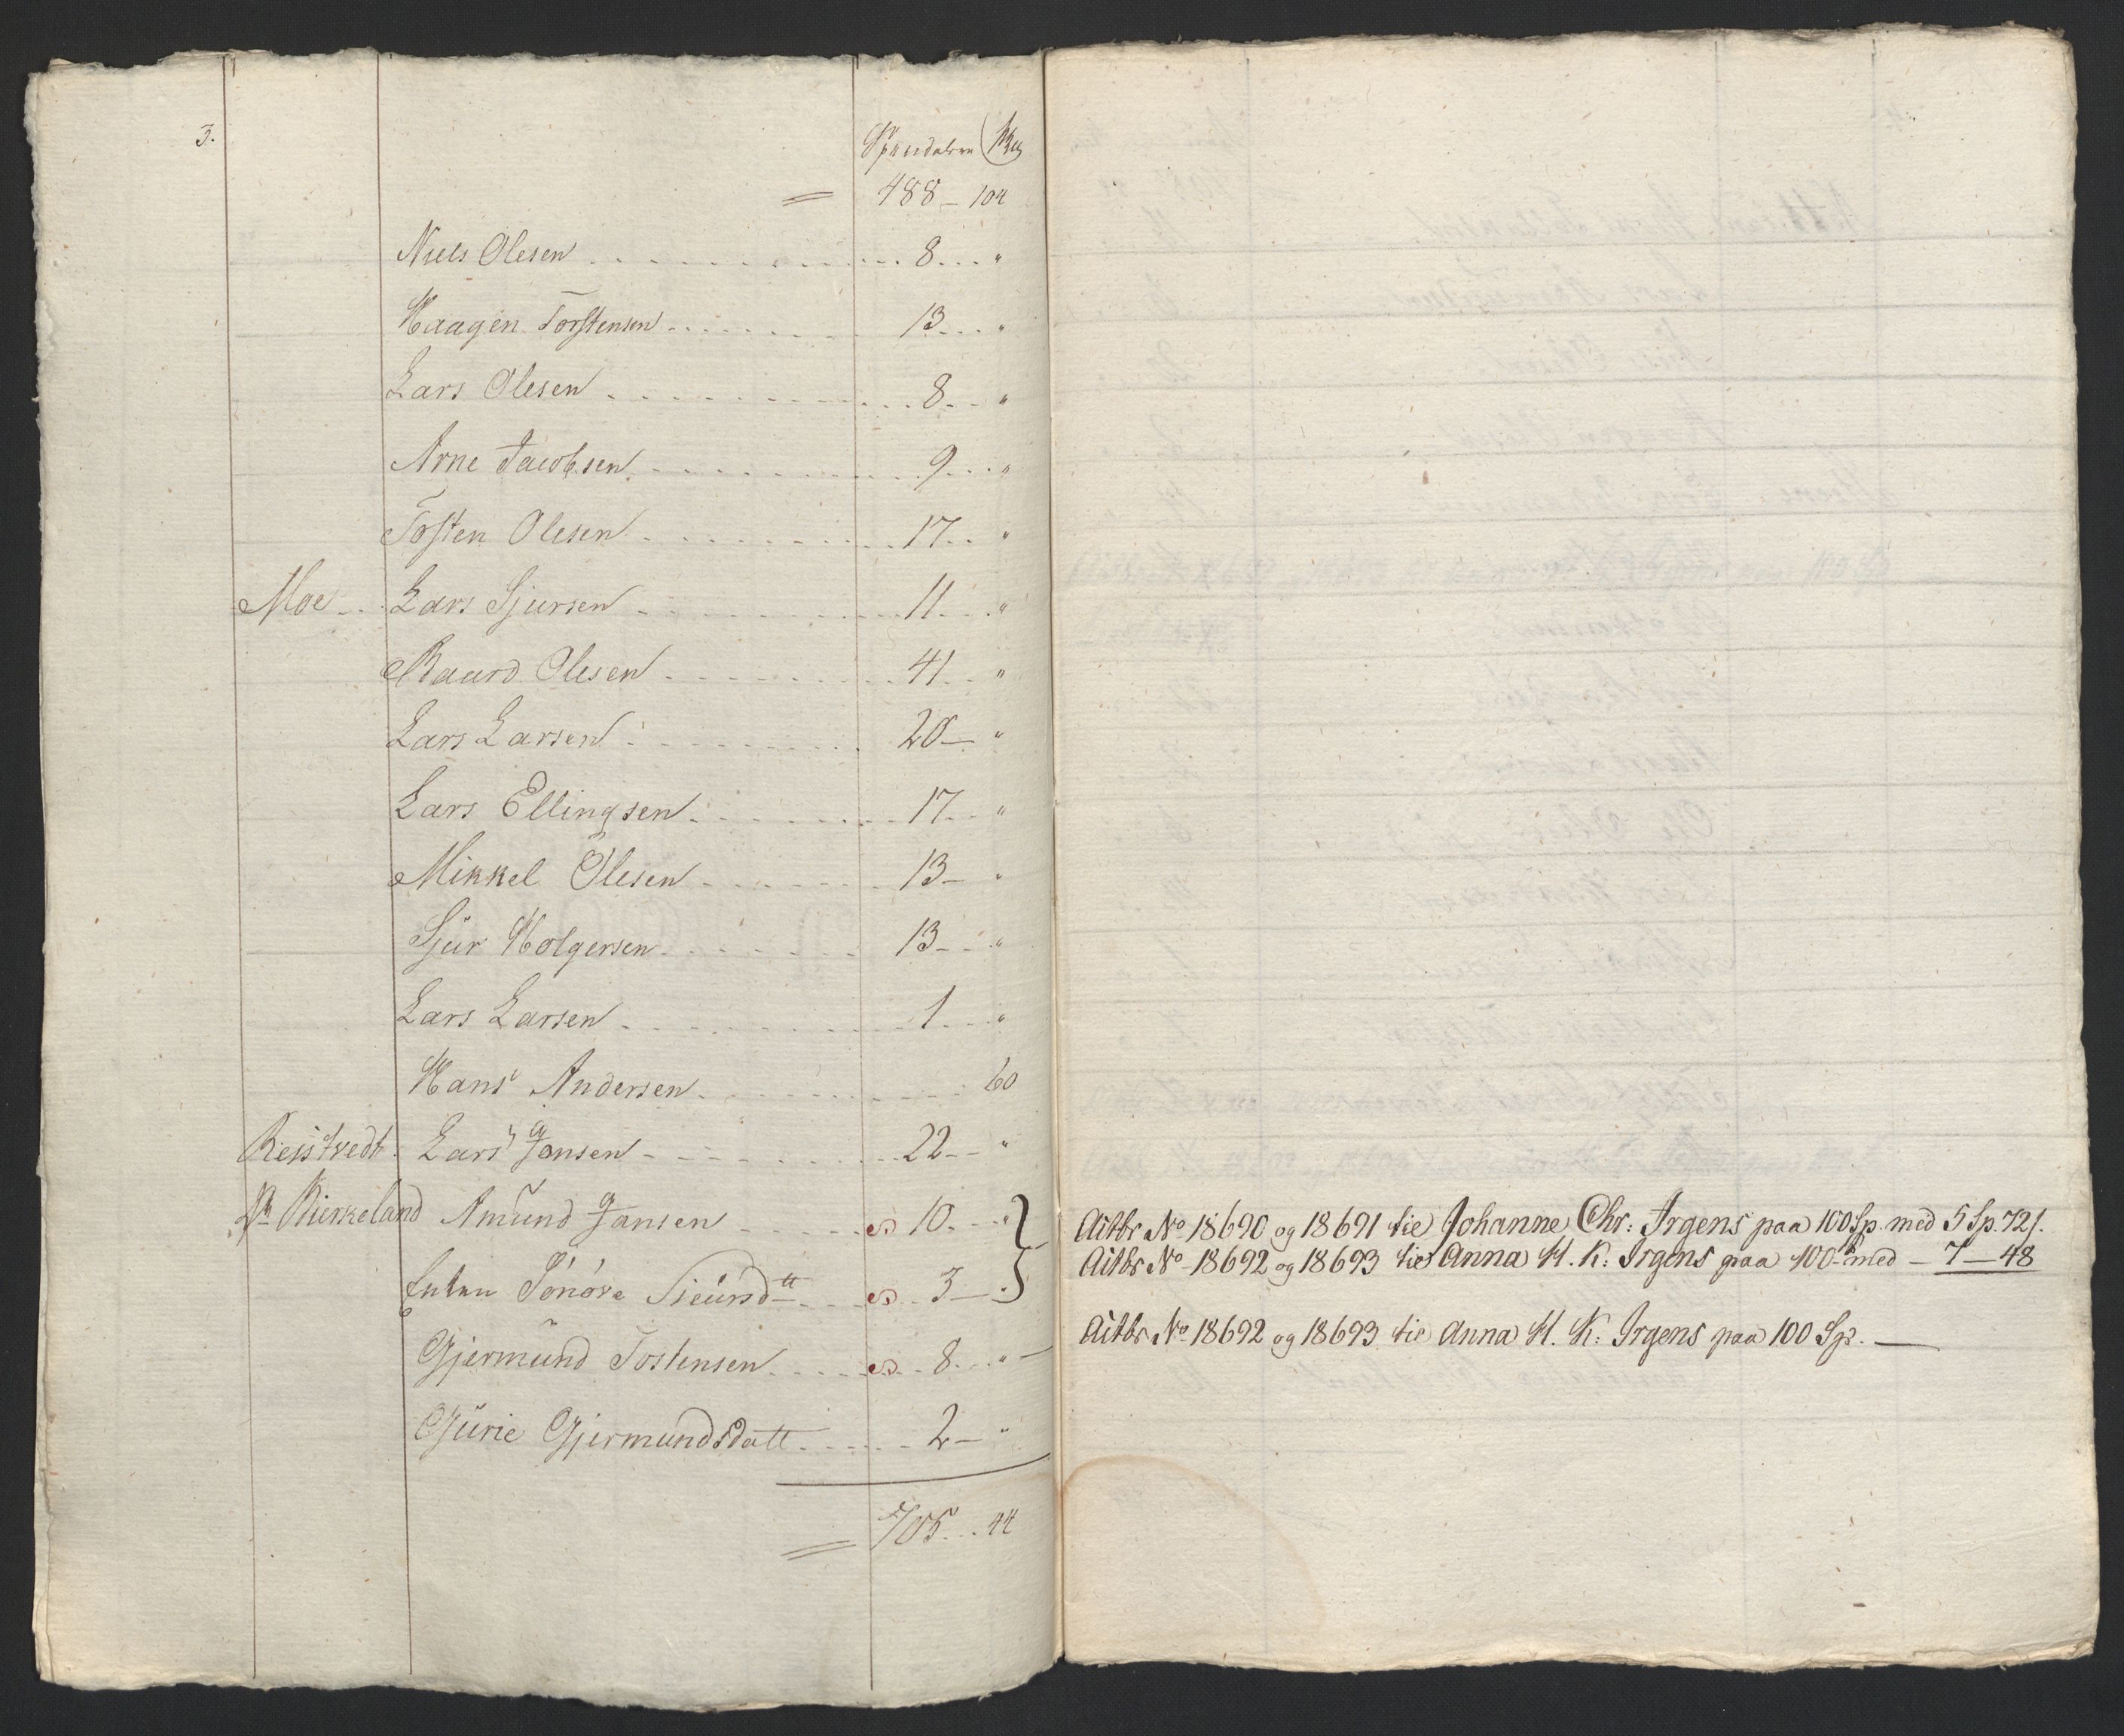 3.
Spesidaler
488 – 104
Niels Olesen . . . 8 . . "
Haagen Torstensen . . . 13 . . "
Lars Olesen . . . 8 . . "
Arne Jacobsen . . . 9 . . "
Tosten Olesen . . . 17 . . "
Moe . . Lars Sjursen . . . 11 . . "
Baard Olesen . . . 41 . . "
Lars Larsen . . . 20 – "
Lars Ellingsen . . . 17 . . "
Mikkel Olesen . . . 13 – "
Sjur Holgersen . . . 13 . . "
Lars Larsen . . . 1 . . "
Hans Andersen . . . 60
Reistvedt . Lars Jansen . . . 22 – "
Birkeland Amund Jansen . . . 10 . . "
Enken Sönöve Siursdtt . . . 3 – "
Gjermund Tostensen . . . 8 . . "
Gurie Gjermundsdatt . . . 2 – "
705 . . 44
Actbr No 18690 og 18691 til Johanne Chr: Irgens paa 100 Sp. med 5 Sp. 72 s.
Actbr No 18692 og 18693 til Anna H. K: Irgens paa 100 – med – 7 – 48
Actbr No 18692 og 18693 til Anna H. K: Irgens paa 100 Sp. —